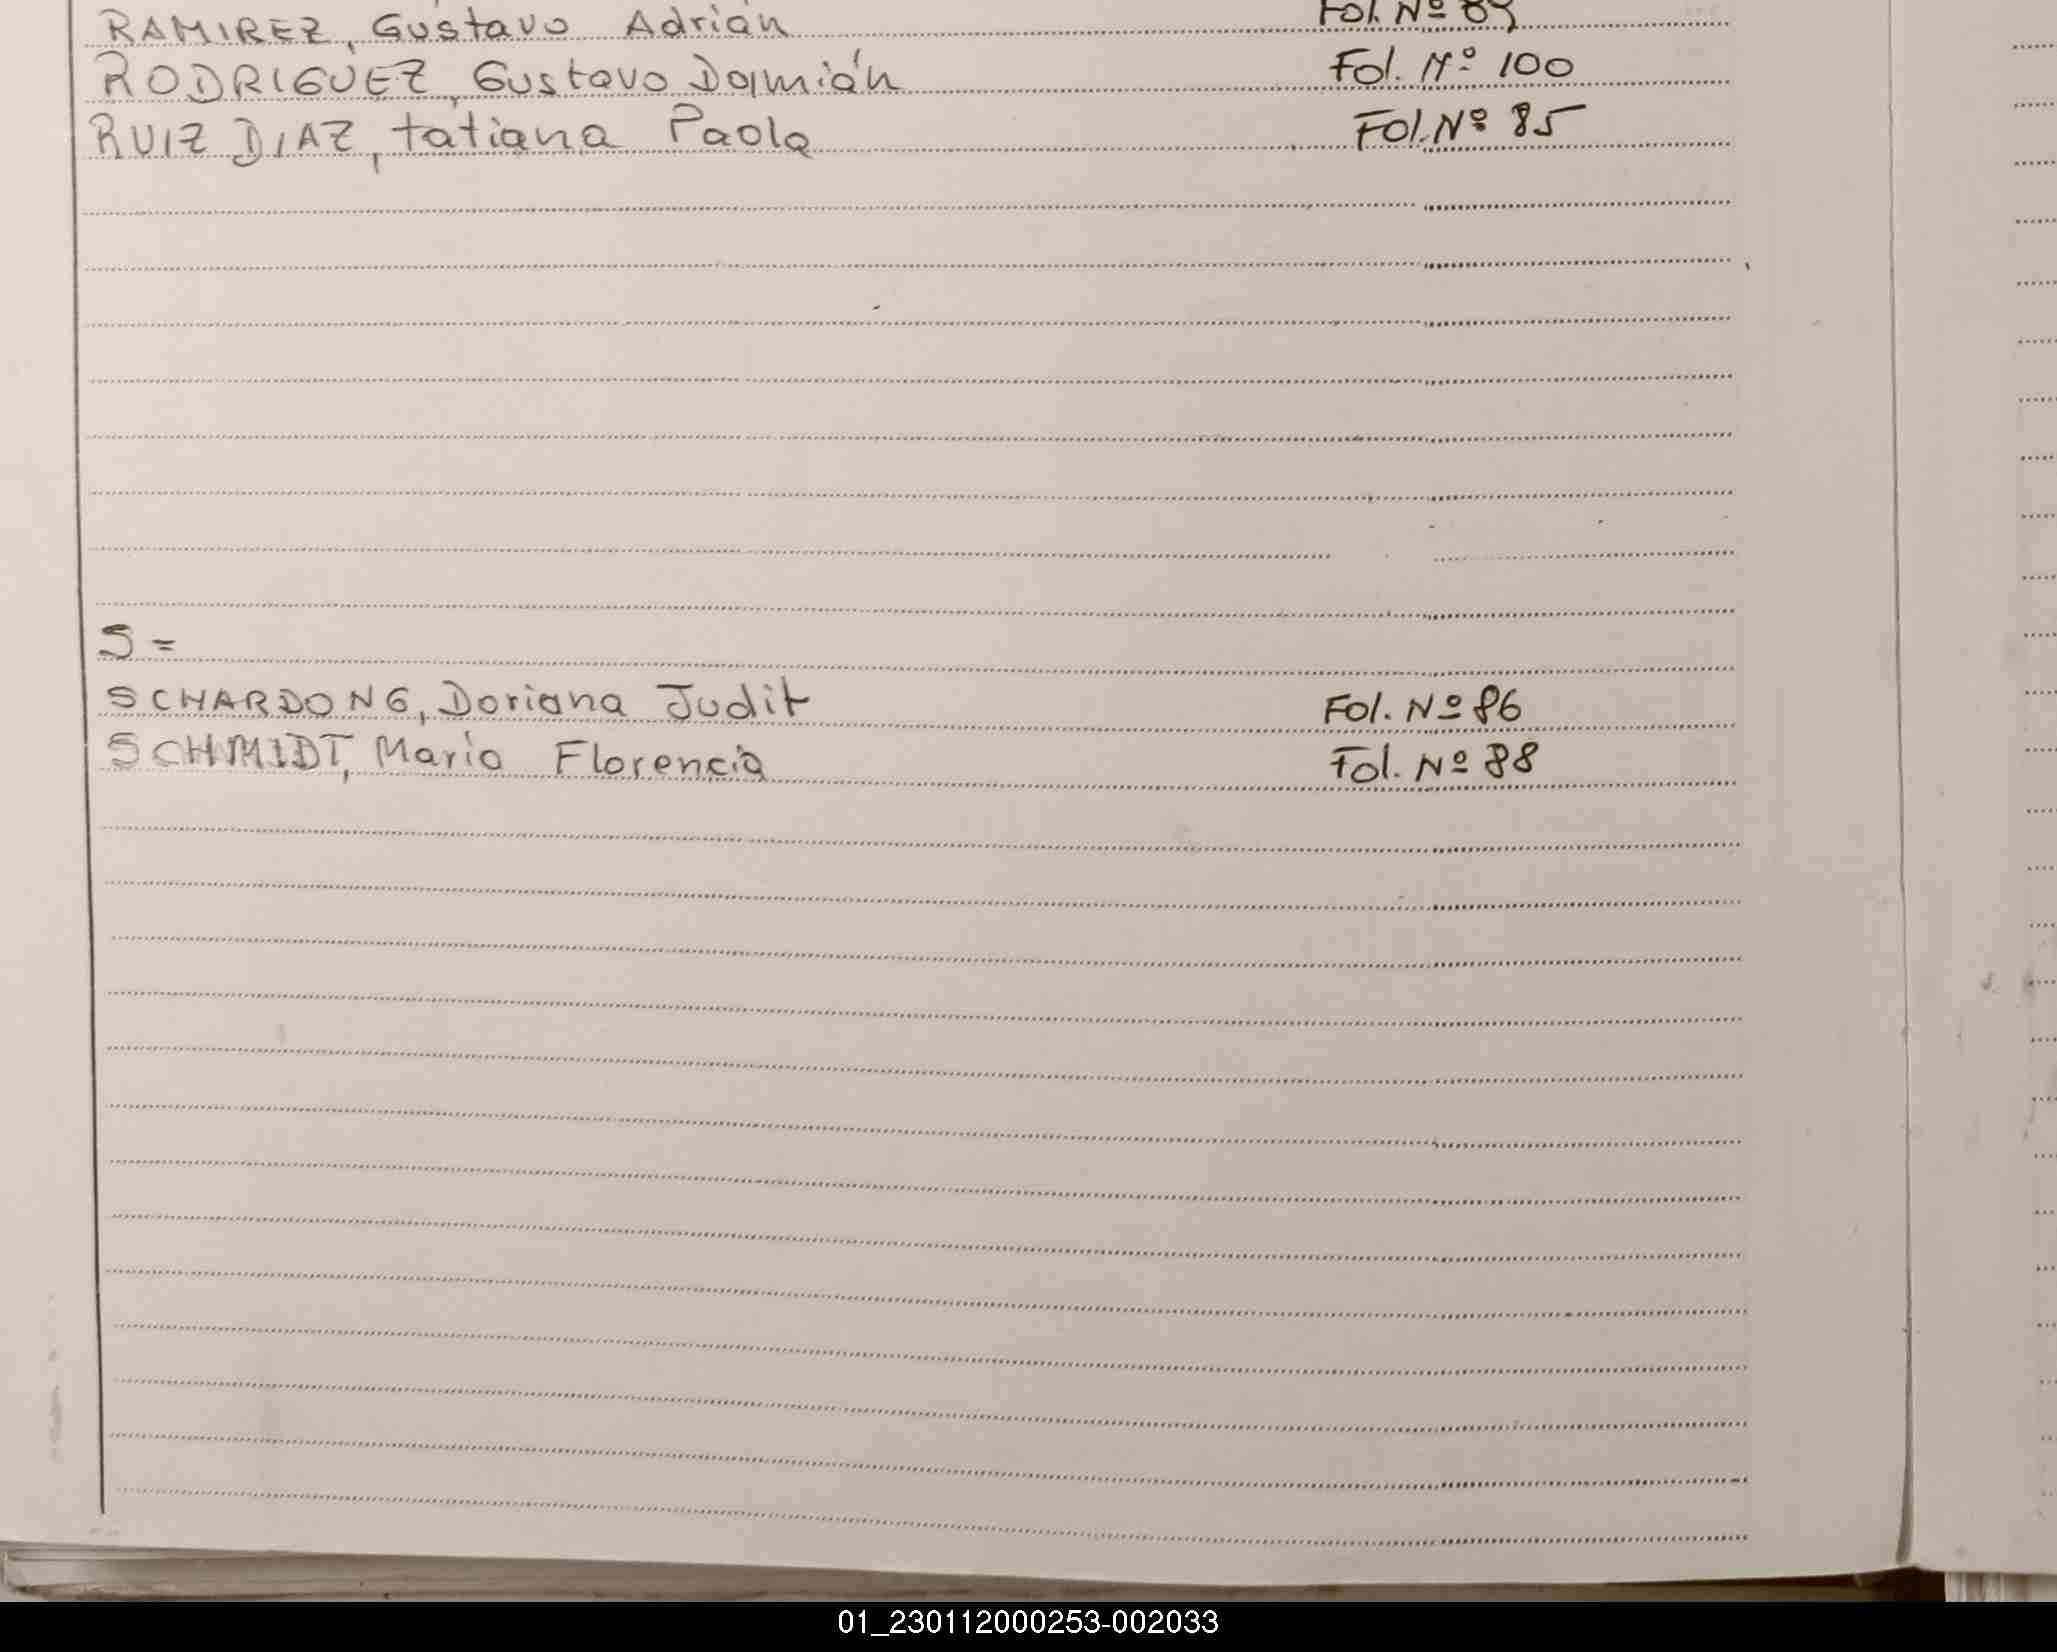 RAMIREZ, Gustavo Adrián Fol. Nº 89
RODRIGUEZ, Gustavo Damián Fol. Nº 100
RUIZ DIAZ, tatiana Paola Fol. Nº 85
S =
SCHARDONG, Doriana Judit Fol. Nº 86
SCHMIDT, Maria Florencia Fol. Nº 88
01_230112000253-002033